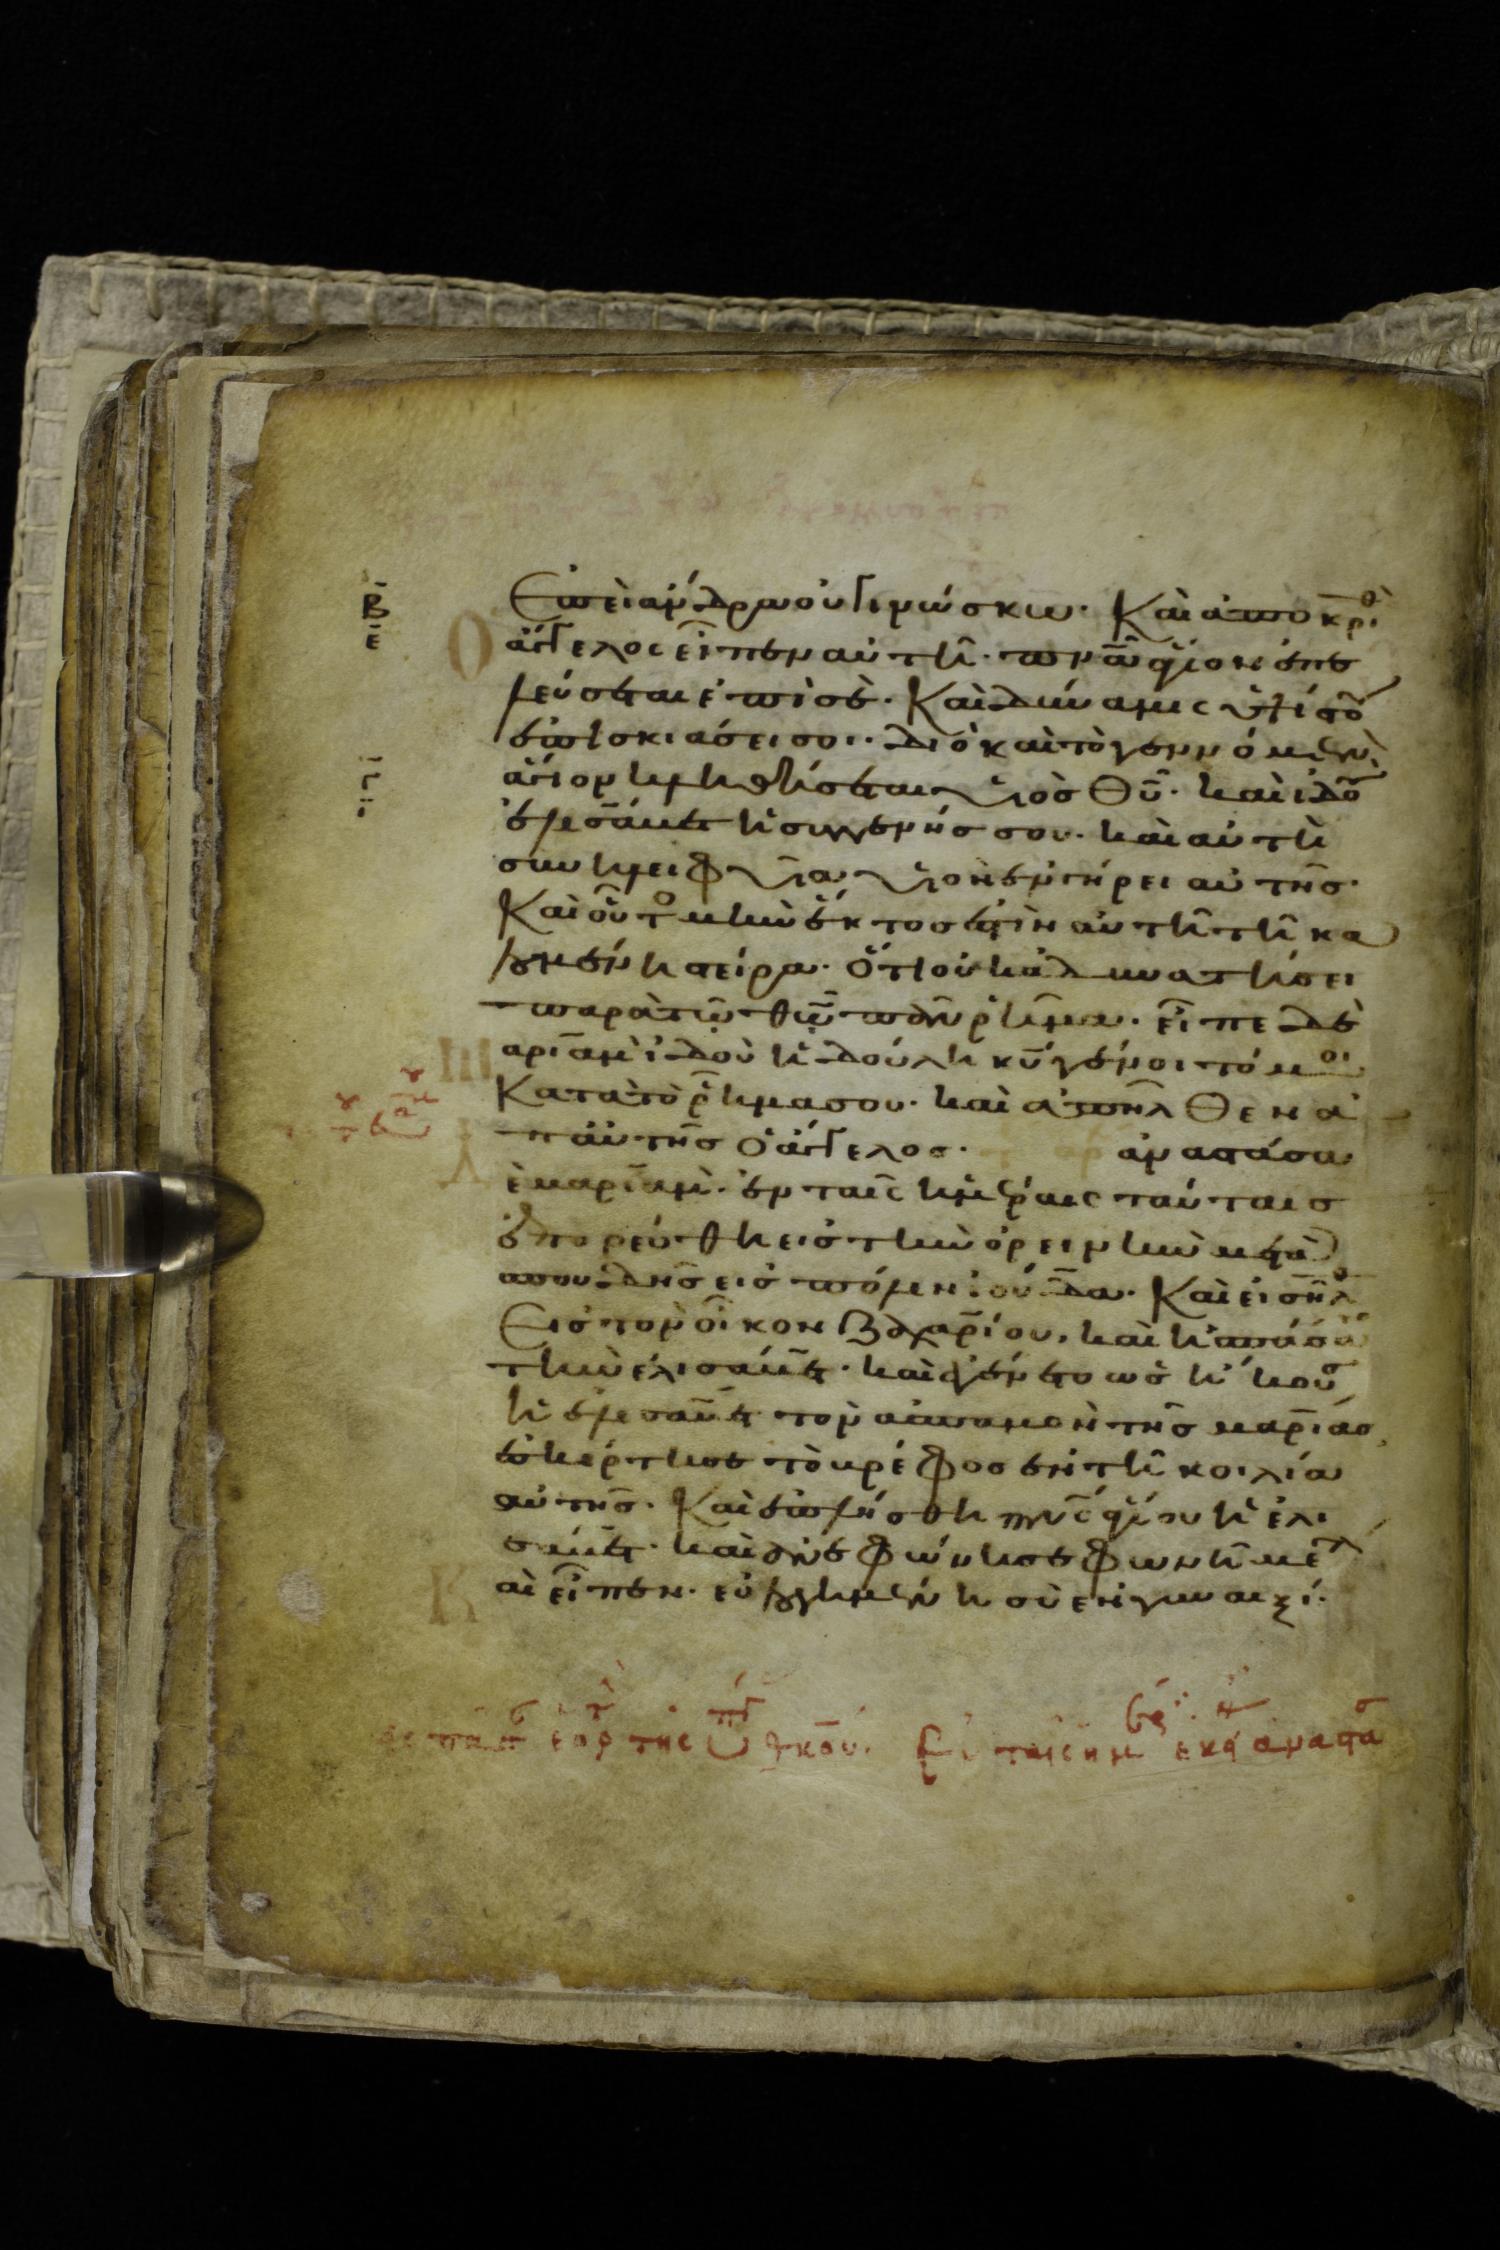 Ἐπεὶ ἄνδρα οὐ γινώσκω· Καὶ ἀποκριθ
Ο ἄγγελος εἶπεν αὐτῆ· πνᾶ ἅγιον ἐπε
λεύσεται ἐπὶ σὲ· Καὶ δύναμις ὑψίστου
ἐπισκιάσει σοι· διὸ καὶ τὸ γεννόμενον
ἅγιον κληθήσεται υἱὸς θῦ· καὶ ἰδοῦ
ἐλισάβετ ἡ συγγενής σου· καὶ αὐτὴ
συνηλειφυῖα υἱὸν ἐν γήρει αὐτῆς·
Καὶ οὗτος μὴν ἕκτος ἐστὶν αὐτῆ τῆ κα
λουμένη στείρα· ὅτι οὐκ ἀδυνατήσει
παρὰ τῶ θῶ πᾶν ῥῆμα· εἶπε δὲ
Μ αριὰμ ἰδοὺ ἡ δούλη κῦ γένοιτό μοι
Κατὰ τὸ ῥῆμα σου· καὶ ἀπῆλθεν ἀ
π αὐτῆς ὁ ἄγγελος· ἀναστᾶσα
Δ ὲ μαριὰμ· ἐν ταῖς ἡμέραις ταύταις
ἐπορεύθη εἰς τὴν ὀρεινὴν μετὰ
σπουδῆς εἰς πόλιν ἰούδα· Καὶ εἰσῆλθ
Εἰς τὸν οἶκον ζαχαρίου, καὶ ἠσπάσα
τὴν ἐλισάβετ· καὶ ἐγένετο ὡς ἤκουσ
ἡ ἐλισάβετ τὸν ἀσπασμὸν τῆς μαρίας,
ἐσκίρτησε τὸ βρέφος ἐν τῆ κοιλία
αὐτῆς· Καὶ ἐπλήσθη πνς ἁγίου ἡ ἐλι
σάβετ· καὶ ἀνεφώνησε φωνῆ μεγάλ
Κ αὶ εἶπεν· εὐλογημένη σὺ ἐν γυναιξί·